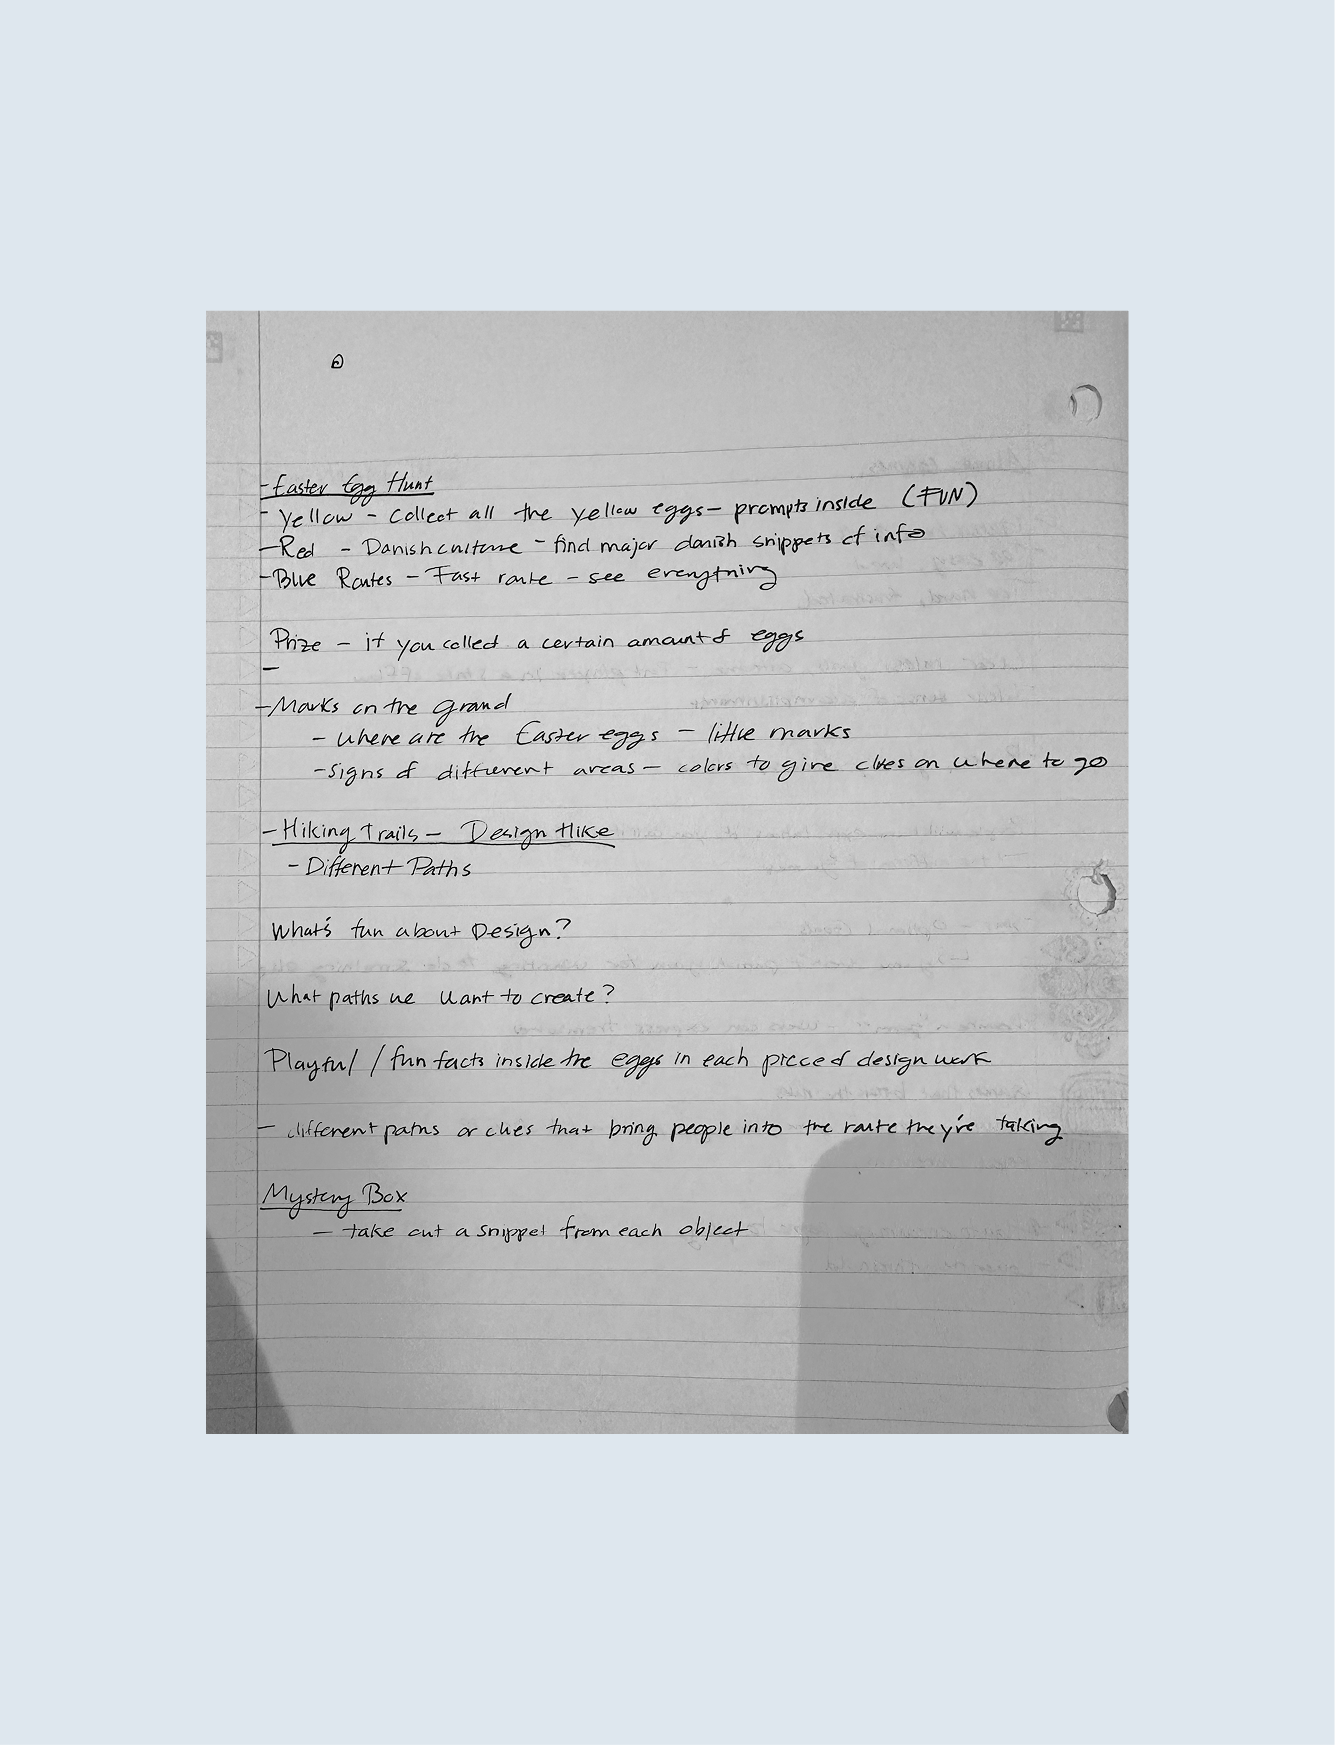 - Easter Egg Hunt
- Yellow - Collect all the yellow eggs - prompts inside (FUN)
- Red - Danish culture - find major danish snippets of info
- Blue Routes - Fast route - see everything
Prize - if you colled a certain amount of eggs
-
- Marks on the ground
- Where are the Easter eggs - little marks
- Signs of different areas - colors to give clues on where to go
- Hiking Trails - Design Hike
- Different Paths
What's fun about Design?
What paths we want to create?
Playful / fun facts inside the eggs in each piece of design work
- different paths or clues that bring people into the route they're taking
Mystery Box
- take out a snippet from each object